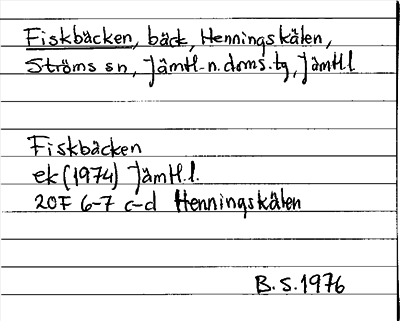 Fiskbäcken, bäck, Henningskälen,
Ströms sn, Jämtl. n. doms. tg, Jämtl.l
Fiskbäcken
ek (1974) Jämtl.l.
20F 6-7 c-d Henningskälen
B.S. 1976